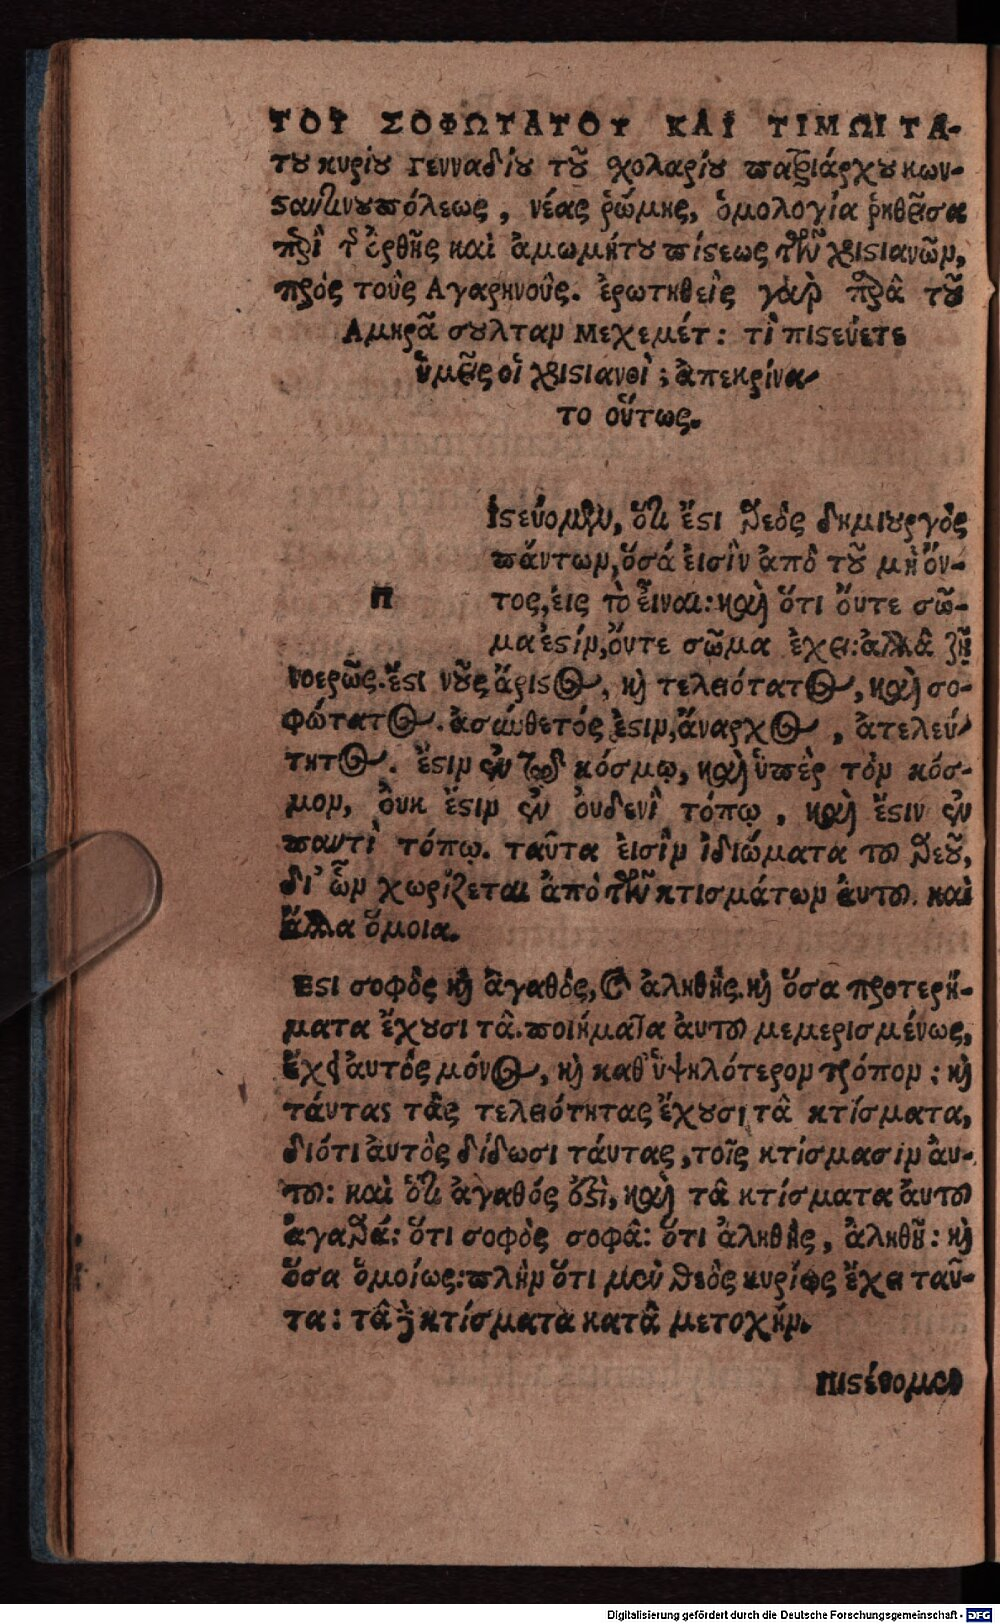 ΤΟΥ ΣΟΦΩΤΑΤΟΥ ΚΑΙ ΤΙΜΩΙΤΑ-
του κυρίου γενναδίου τοῦ χολαρίου παξιάρχου κων-
σαντινουπόλεως, νέας ῥώμης, ὁμολογία ῥηθεῖσα
πρὶ τ ὀρθῆς καὶ ἀμωμήτου πίςεως τῶν χριςιανῶν,
πρὸς τοὺς Αγαρηνούς. ἐρωτηθεὶς γὰρ πρὰ τοῦ
Αμηρᾶ σουλταν Μεχεμέτ: τὶ πιςεύετε
ὑμεῖς οἱ χριςιανοὶ; ἀπεκρίνα-
το οὕτως.
Πιςεύομεν, ὅτι ἔςι θεὸς δημιουργὸς
πάντων, ὅσά ἐισὶν ἀπὸ τοῦ μὴ ὄν-
τος, ἐις τὸ εἶναι: καὶ ὅτι ὄυτε σῶ-
μα ἐςίν, ὄυτε σῶμα ἔχει: ἀλλὰ ζῇ
νοερῶς. ἔςι νοῦς ἄριςος, καὶ τελειότατος, καὶ σο-
φώτατος. ἀσύνθετός ἐςιν, ἄναρχος, ἀτελεύ-
τητος. ἔςιν ἐν τῷ κόσμῳ, καὶ ὑπὲρ τὸν κόσ-
μον, ὀυκ ἔςιν ἐν ὀυδενὶ τόπῳ, καὶ ἔςιν ἐν
παντὶ τόπῳ. ταῦτα ἐισὶν ἰδιώματα τοῦ θεοῦ,
δι' ὧν χωρίζεται ἀπὸ τῶν κτισμάτων ἀυτοῦ. καὶ
ἄλλα ὅμοια.
Εςι σοφὸς καὶ ἀγαθὸς, καὶ ἀληθὴς. καὶ ὅσα προτερή-
ματα ἔχουσι τὰ ποιήματα ἀυτοῦ μεμερισμένως,
ἔχει ἀυτὸς μόνος, καὶ καθ' ὑψηλότερον τρόπον: καὶ
τάυτας τὰς τελειότητας ἔχουσι τὰ κτίσματα,
διότι ἀυτὸς δίδωσι τάυτας, τοῖς κτίσμασιν ἀυ-
τοῦ: καὶ ὅτι ἀγαθός ἐςὶ, καὶ τὰ κτίσματα ἀυτοῦ
ἀγαθά: ὅτι σοφὸς σοφὰ: ὅτι ἀληθὴς, ἀληθῆ: καὶ
ὅσα ὁμοίως: πλὴν ὅτι μεν θεὸς κυρίως ἔχει ταῦ-
τα: τὰ δὲ κτίσματα κατὰ μετοχήν.
Πιςέυομεν
Digitalisierung gefördert durch die Deutsche Forschungsgemeinschaft - DFG